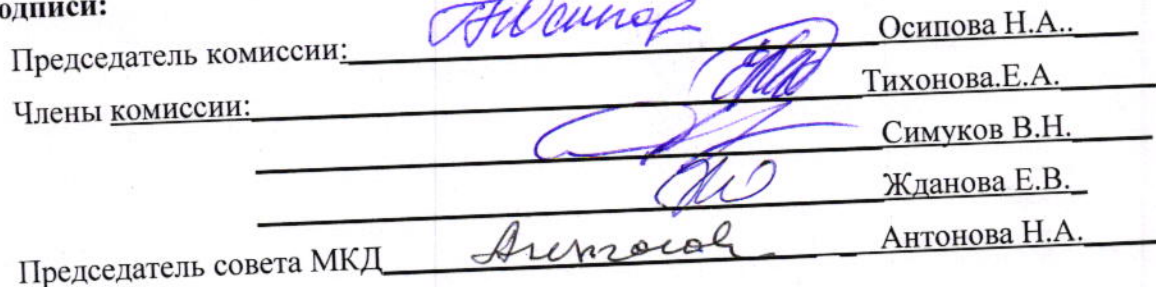 одписи:
Председатель комиссии: Осипова Н.А..
Члены комиссии: Тихонова.Е.А.
Симуков В.Н.
Жданова Е.В.
Председатель совета МКД Антонова Н.А.